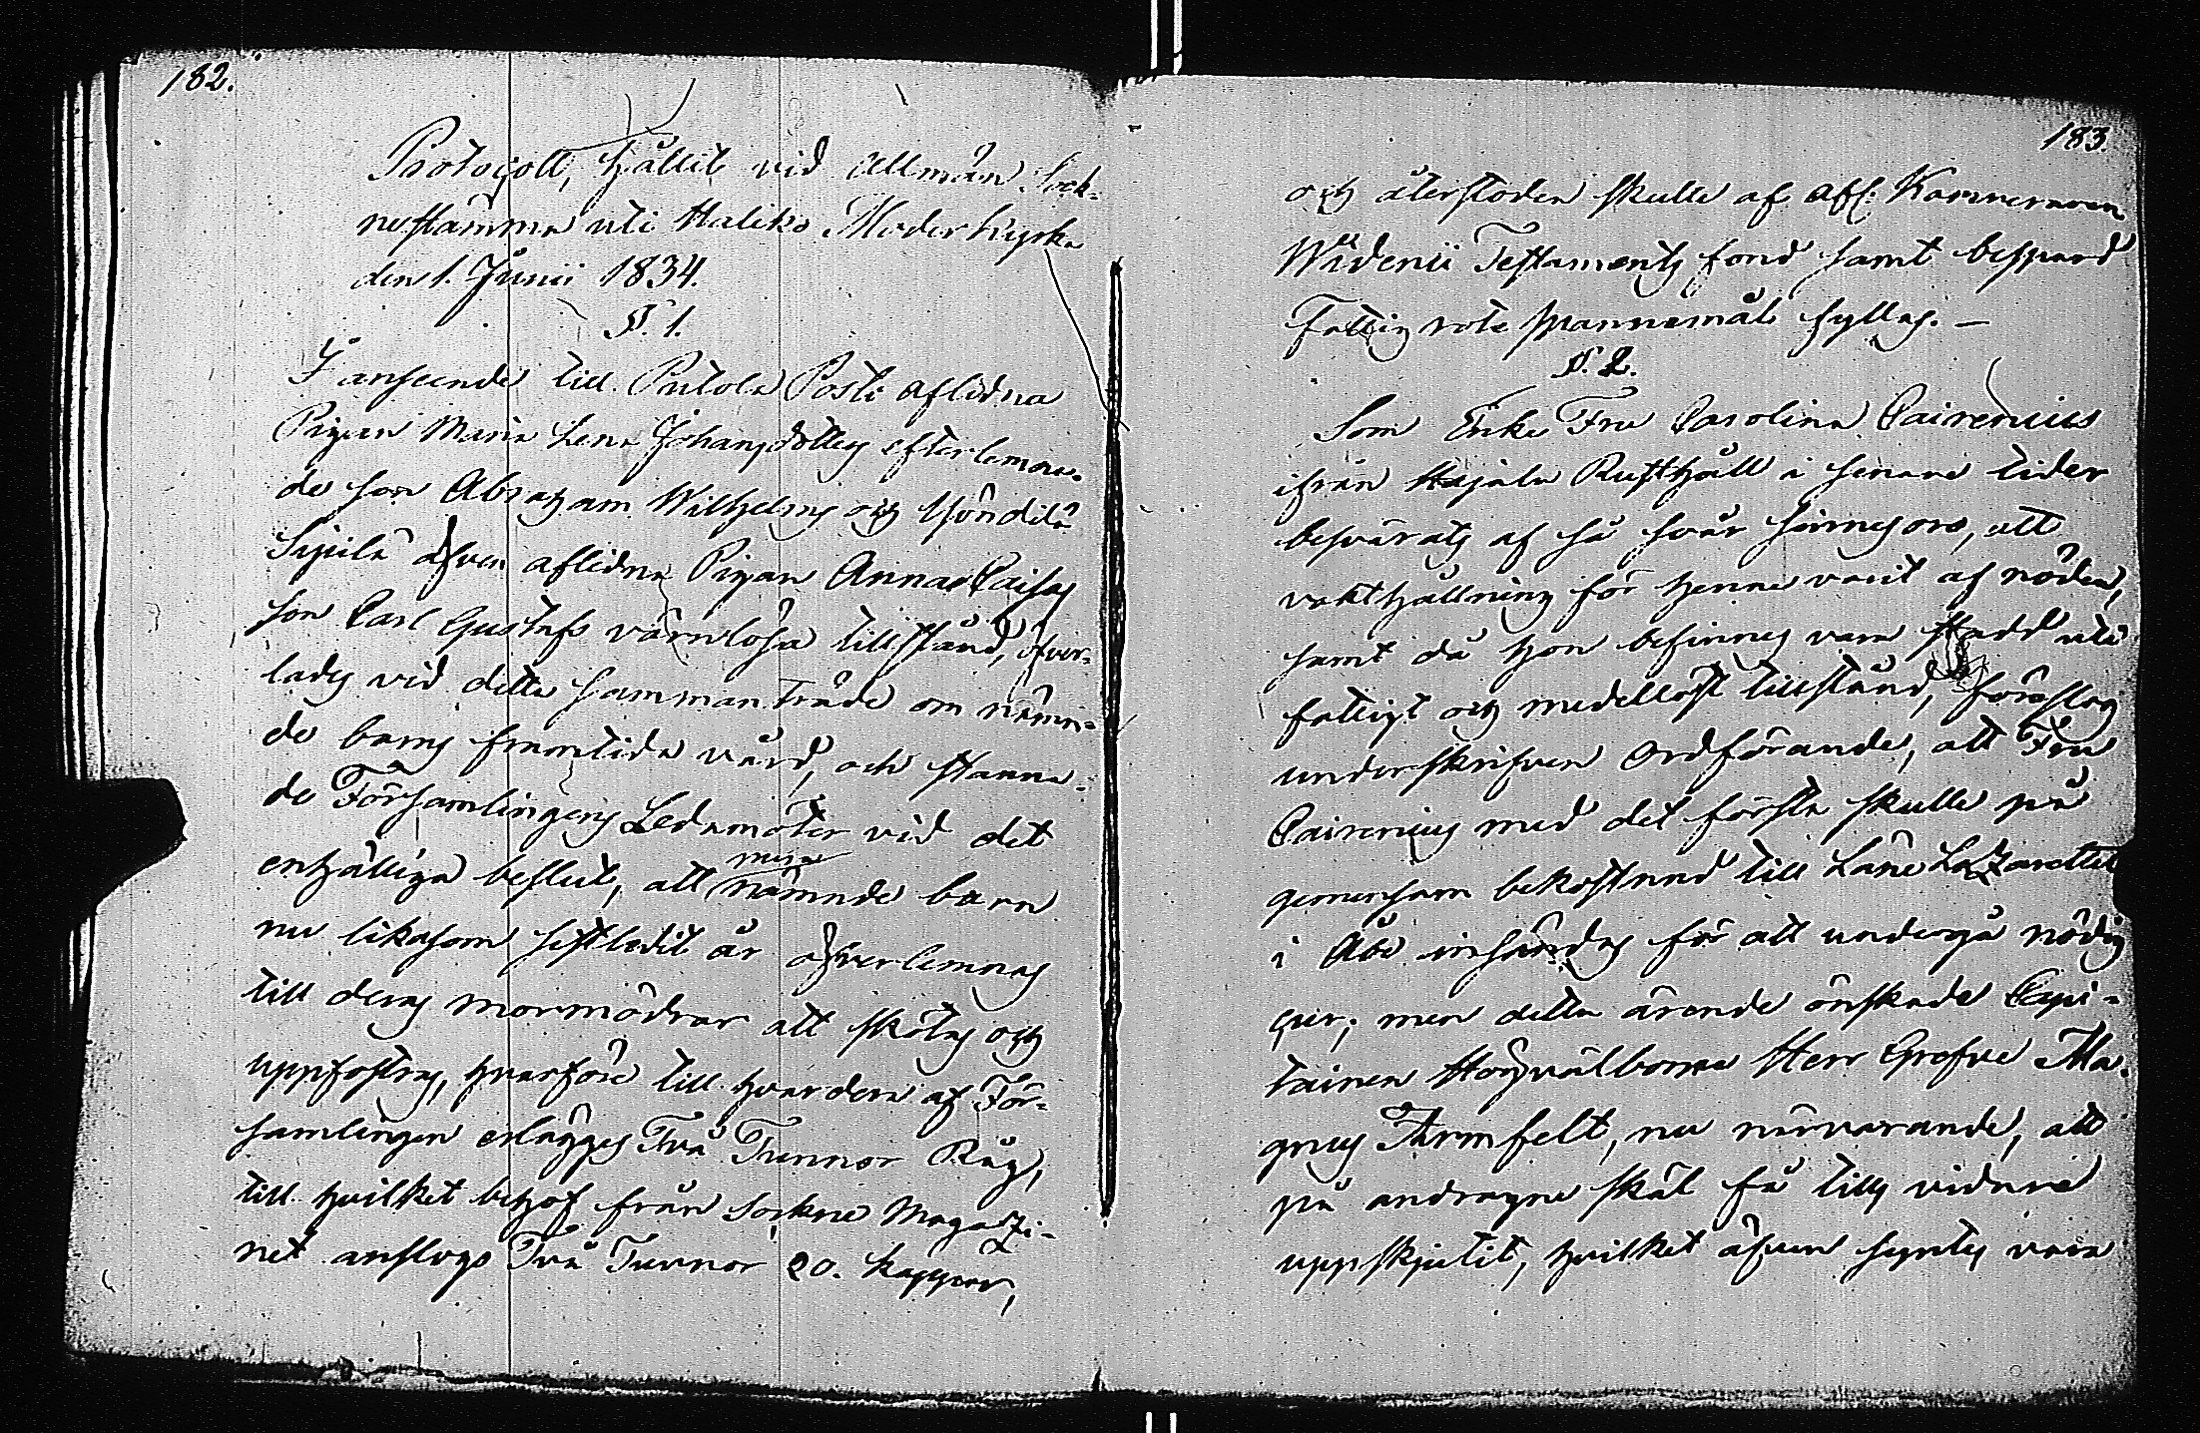 182.
Protocoll, hållit vid Allmän Sock-
nestämma uti Haliko Moderkyrka
den 1. Junii 1834.
§. 1.
I anseende till Putola Posti aflidna
Pigan Maria Lena Johansdotters efterlemna-
de son Abraham Wilhelms och Yöndilä
Sipilä äfven aflidna Pigan Annas Caisas
son Carl Gustafs värnlösa tillstånd, öfver-
lades vid detta sammanträde om nämn-
de barns framtida vård, och stanna-
de Församlingens Ledamöter vid det
enhälliga beslut, att nämnde barn
nu likasom sistledit år öfverlemnas
till deras mormödrar att skötas och
uppfostras, hvarföre till hvardera af För-
samlingen erlägges Två Tunnor Råg,
till hvilket behof från Sockne Magazi-
net anslogs Två Tunnor 20. kappar,
183.
och återstoden skulle af Afl: Kamreraren
Widenii Testaments fond samt bespard
Fattig rote spannemål fyllas. —
§. 2.
Som Enke Fru Carolina Cairenius
ifrån Hajala Rusthåll i senare tider
besvärats af så svår sinnesoro, att
vakthållning för henne varit af nöden,
samt då hon befinnes vara stadd uti
fattigt och medellöst tillstånd, föreslog
underskrifven Ordförande, att Fru
Cairenius med det första skulle på
gemensam bekostnad till Läne Lazarettet
i Åbo insändas för att undergå nödig
cur; men detta ärende önskade Capi-
tainen Högvälborne Herr Grefve Ma-
gnus Armfelt, nu närvarande, att
på andragne skäl få tills vidare
uppskjutit, hvilket äfven syntes vara